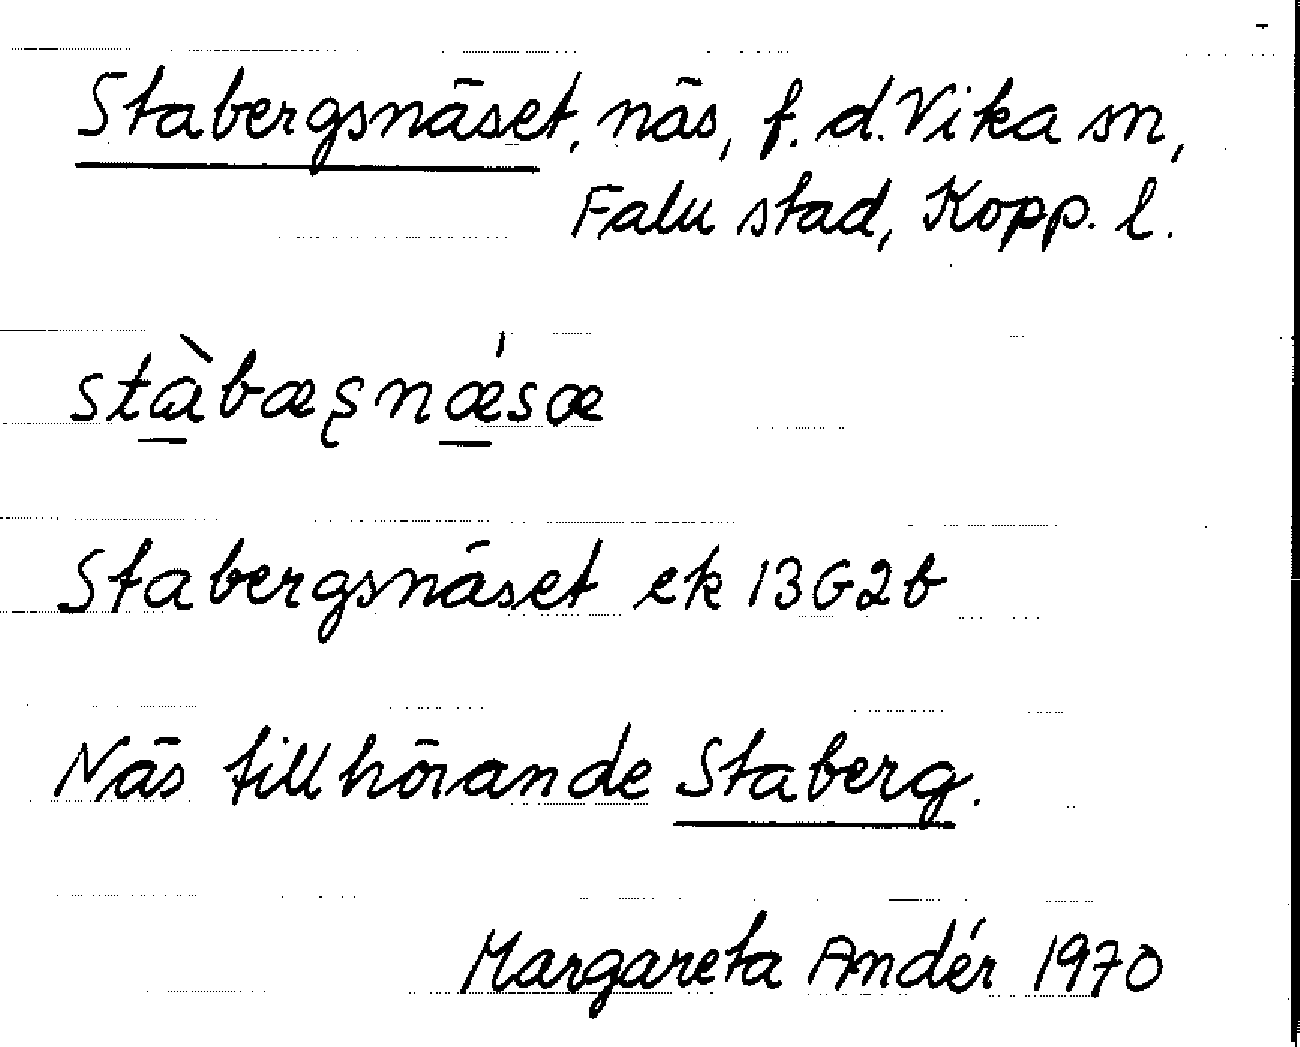 Stabergsnäset, näs, f. d. Vika sn,
Falu stad, Kopp. l.
stàbæʂnǽsæ
Stabergsnäset ek 13G2b
Näs tillhörande Staberg.
Margareta Andér 1970